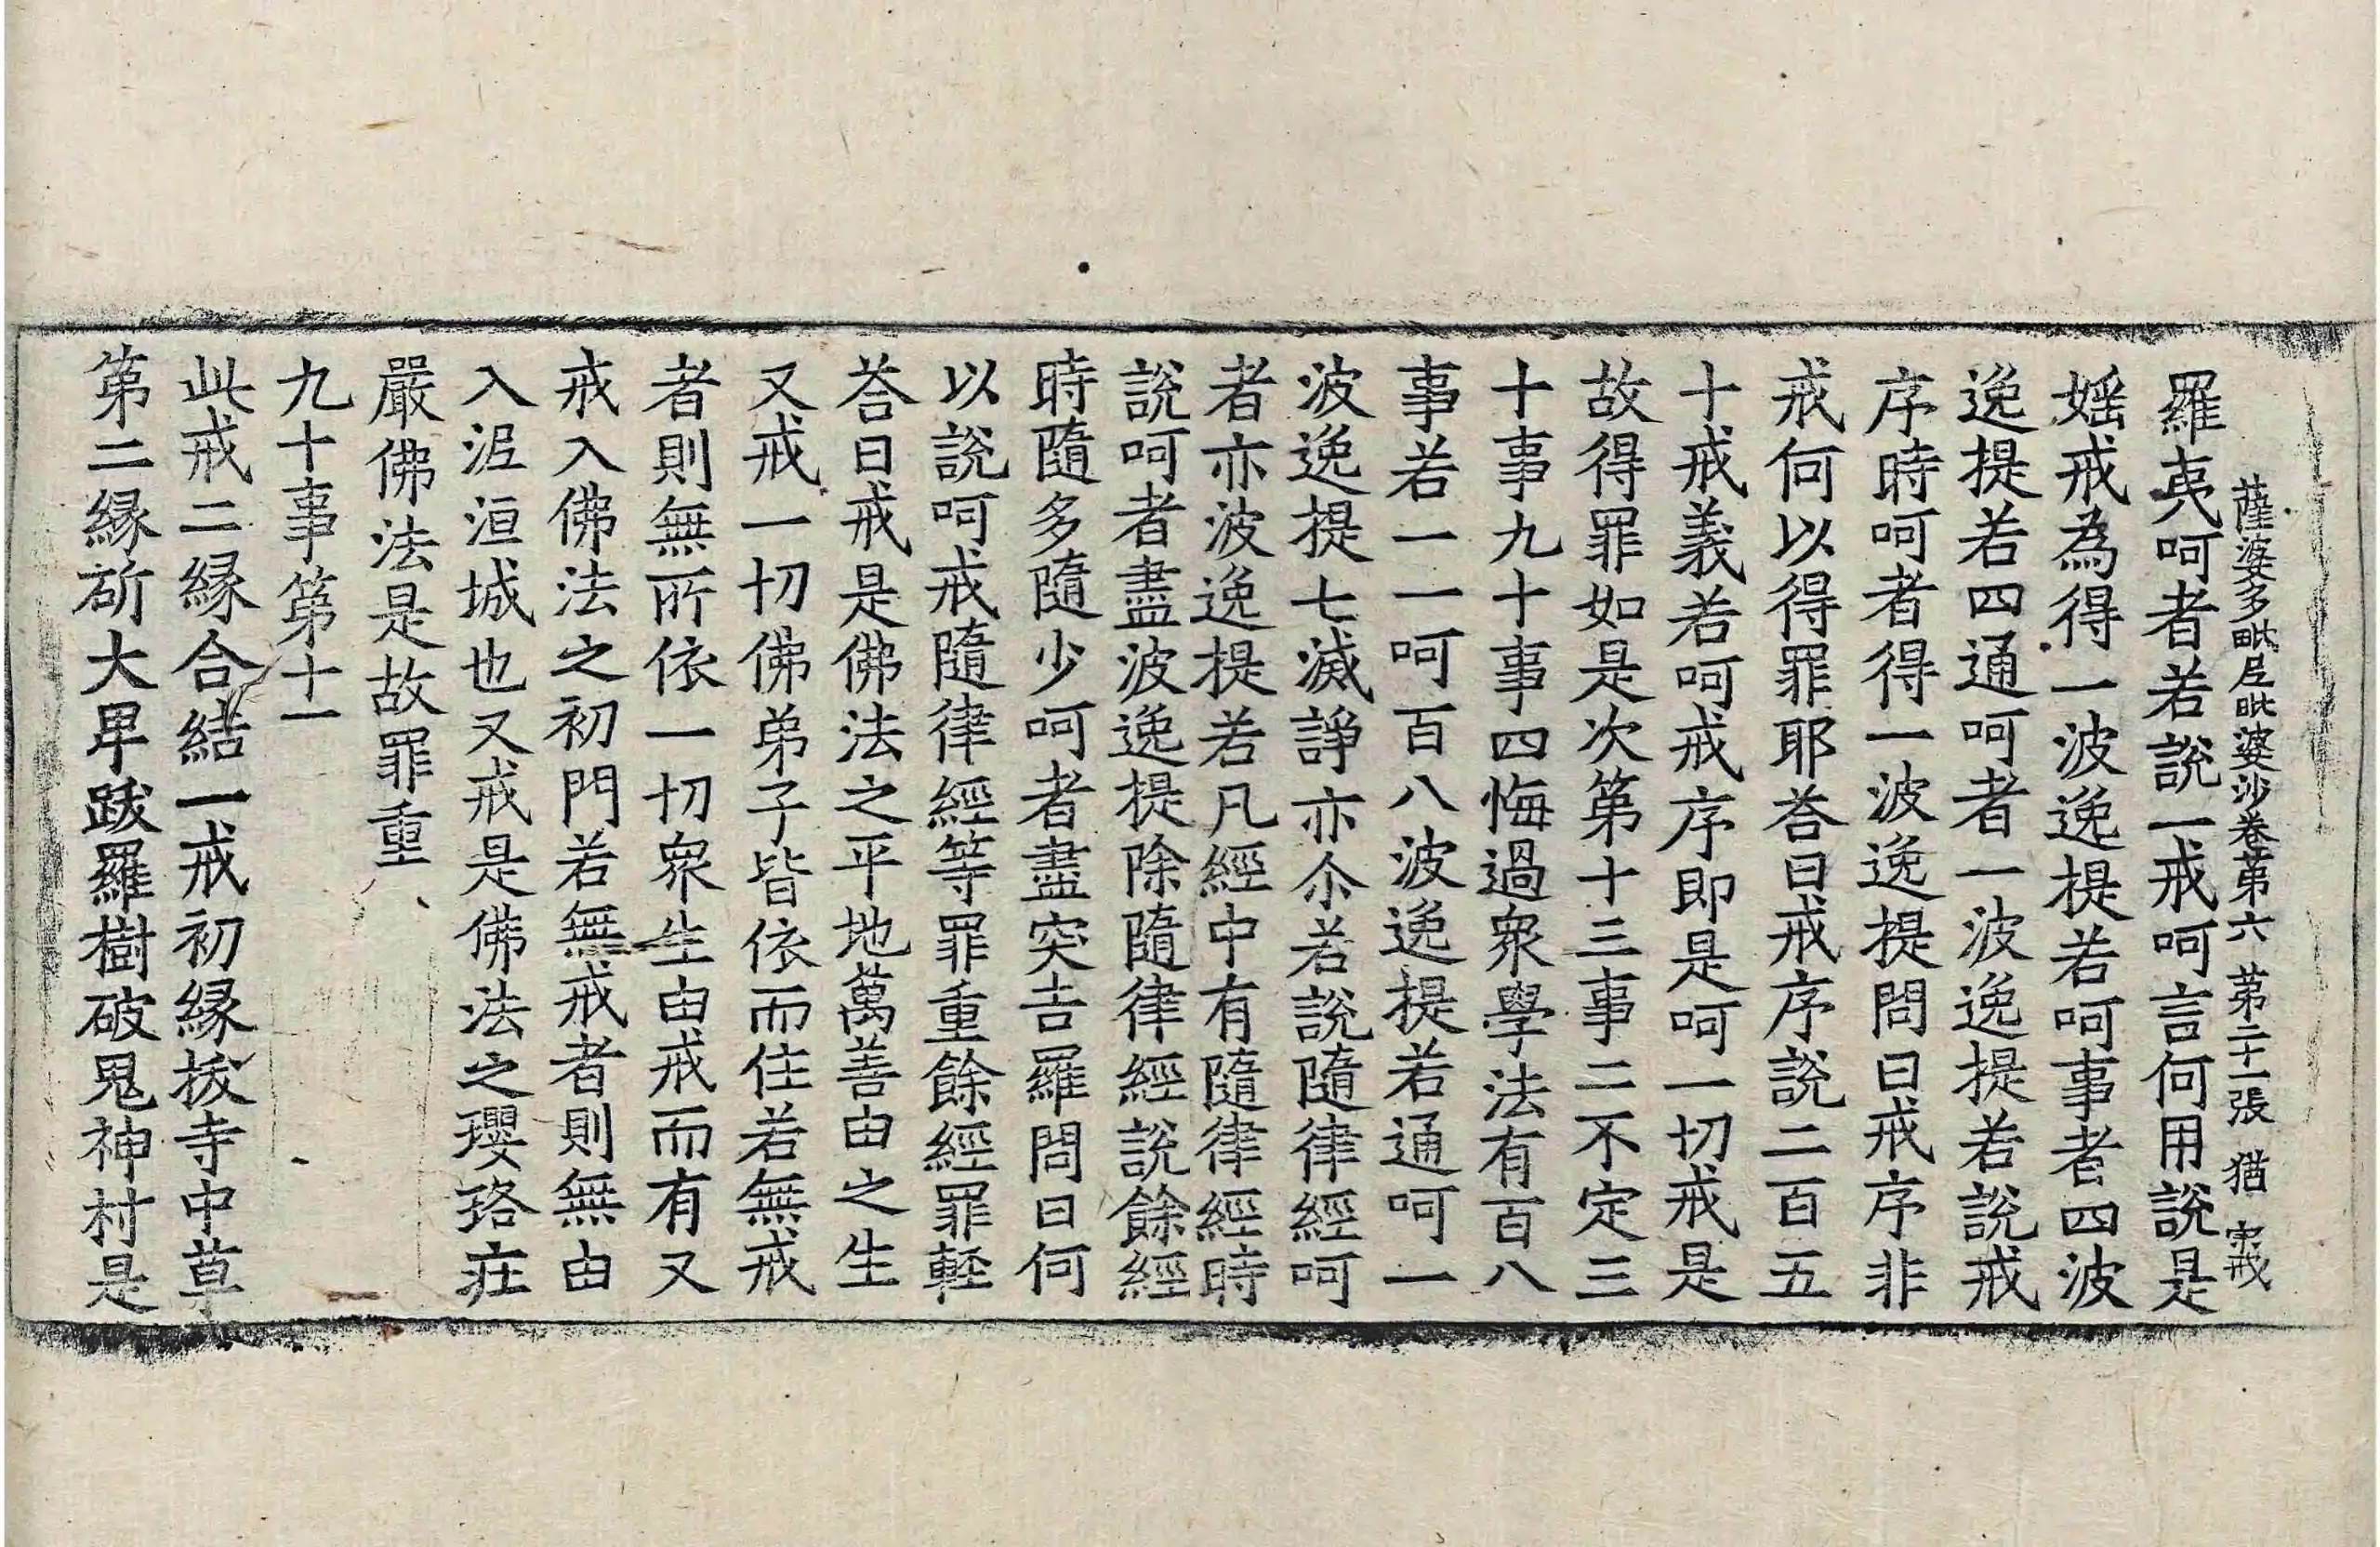 薩婆多毗尼毗婆沙卷第六 第二十一張 猶 宋戒
羅夷呵者若說一戒呵言何用說是
婬戒為得一波逸提若呵事者四波
逸提若四通呵者一波逸提若說戒
序時呵者得一波逸提問曰戒序非
戒何以得罪耶荅曰戒序說二百五
十戒義若呵戒序即是呵一切戒是
故得罪如是次第十三事二不定三
十事九十事四悔過衆學法有百八
事若一一呵百八波逸提若通呵一
波逸提七滅諍亦尒若說隨律經呵
者亦波逸提若凡經中有隨律經時
說呵者盡波逸提除隨律經說餘經
時隨多隨少呵者盡突吉羅問曰何
以說呵戒隨律經等罪重餘經罪輊
荅曰戒是佛法之平地萬善由之生
又戒一切佛弟子皆依而住若無戒
者則無所依一切衆生由戒而有又
戒入佛法之初門若無戒者則無由
入泥洹城也又戒是佛法之瓔珞莊
嚴佛法是故罪重
九十事第十一
此戒二緣合結一戒初緣拔寺中草
第二緣斫大畢跋羅樹破鬼神村是